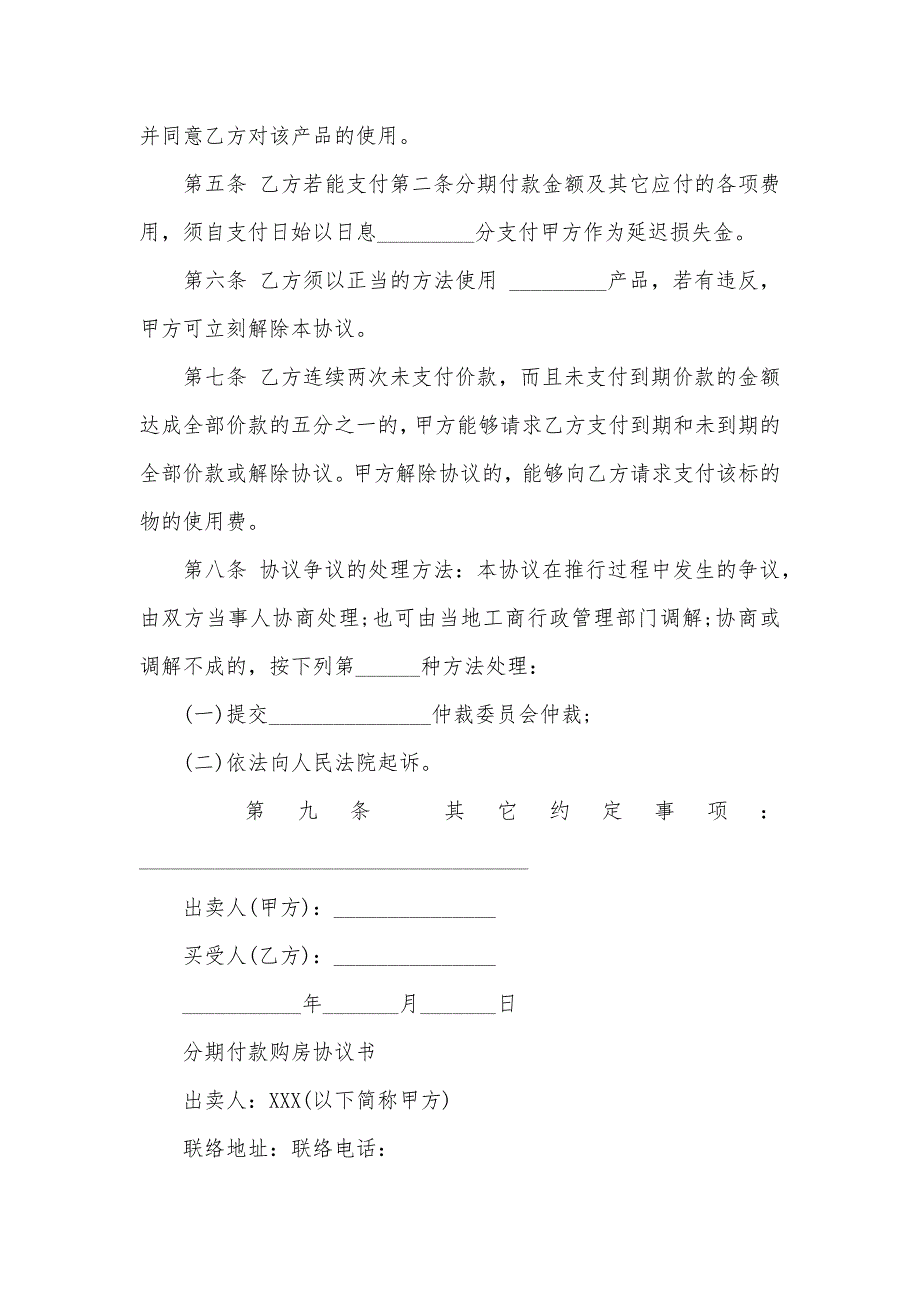 并同意乙方对该产品的使用。
第五条 乙方若能支付第二条分期付款金额及其它应付的各项费
用，须自支付日始以日息_________分支付甲方作为延迟损失金。
第六条 乙方须以正当的方法使用 _________产品，若有违反，
甲方可立刻解除本协议。
第七条 乙方连续两次未支付价款，而且未支付到期价款的金额
达成全部价款的五分之一的，甲方能够请求乙方支付到期和未到期的
全部价款或解除协议。甲方解除协议的，能够向乙方请求支付该标的
物的使用费。
第八条 协议争议的处理方法：本协议在推行过程中发生的争议，
由双方当事人协商处理;也可由当地工商行政管理部门调解;协商或
调解不成的，按下列第______种方法处理：
(一)提交_______________仲裁委员会仲裁;
(二)依法向人民法院起诉。
第九条 其它约定事项：
____________________________________
出卖人(甲方)：_______________
买受人(乙方)：_______________
___________年_______月_______日
分期付款购房协议书
出卖人：XXX(以下简称甲方)
联络地址：联络电话：